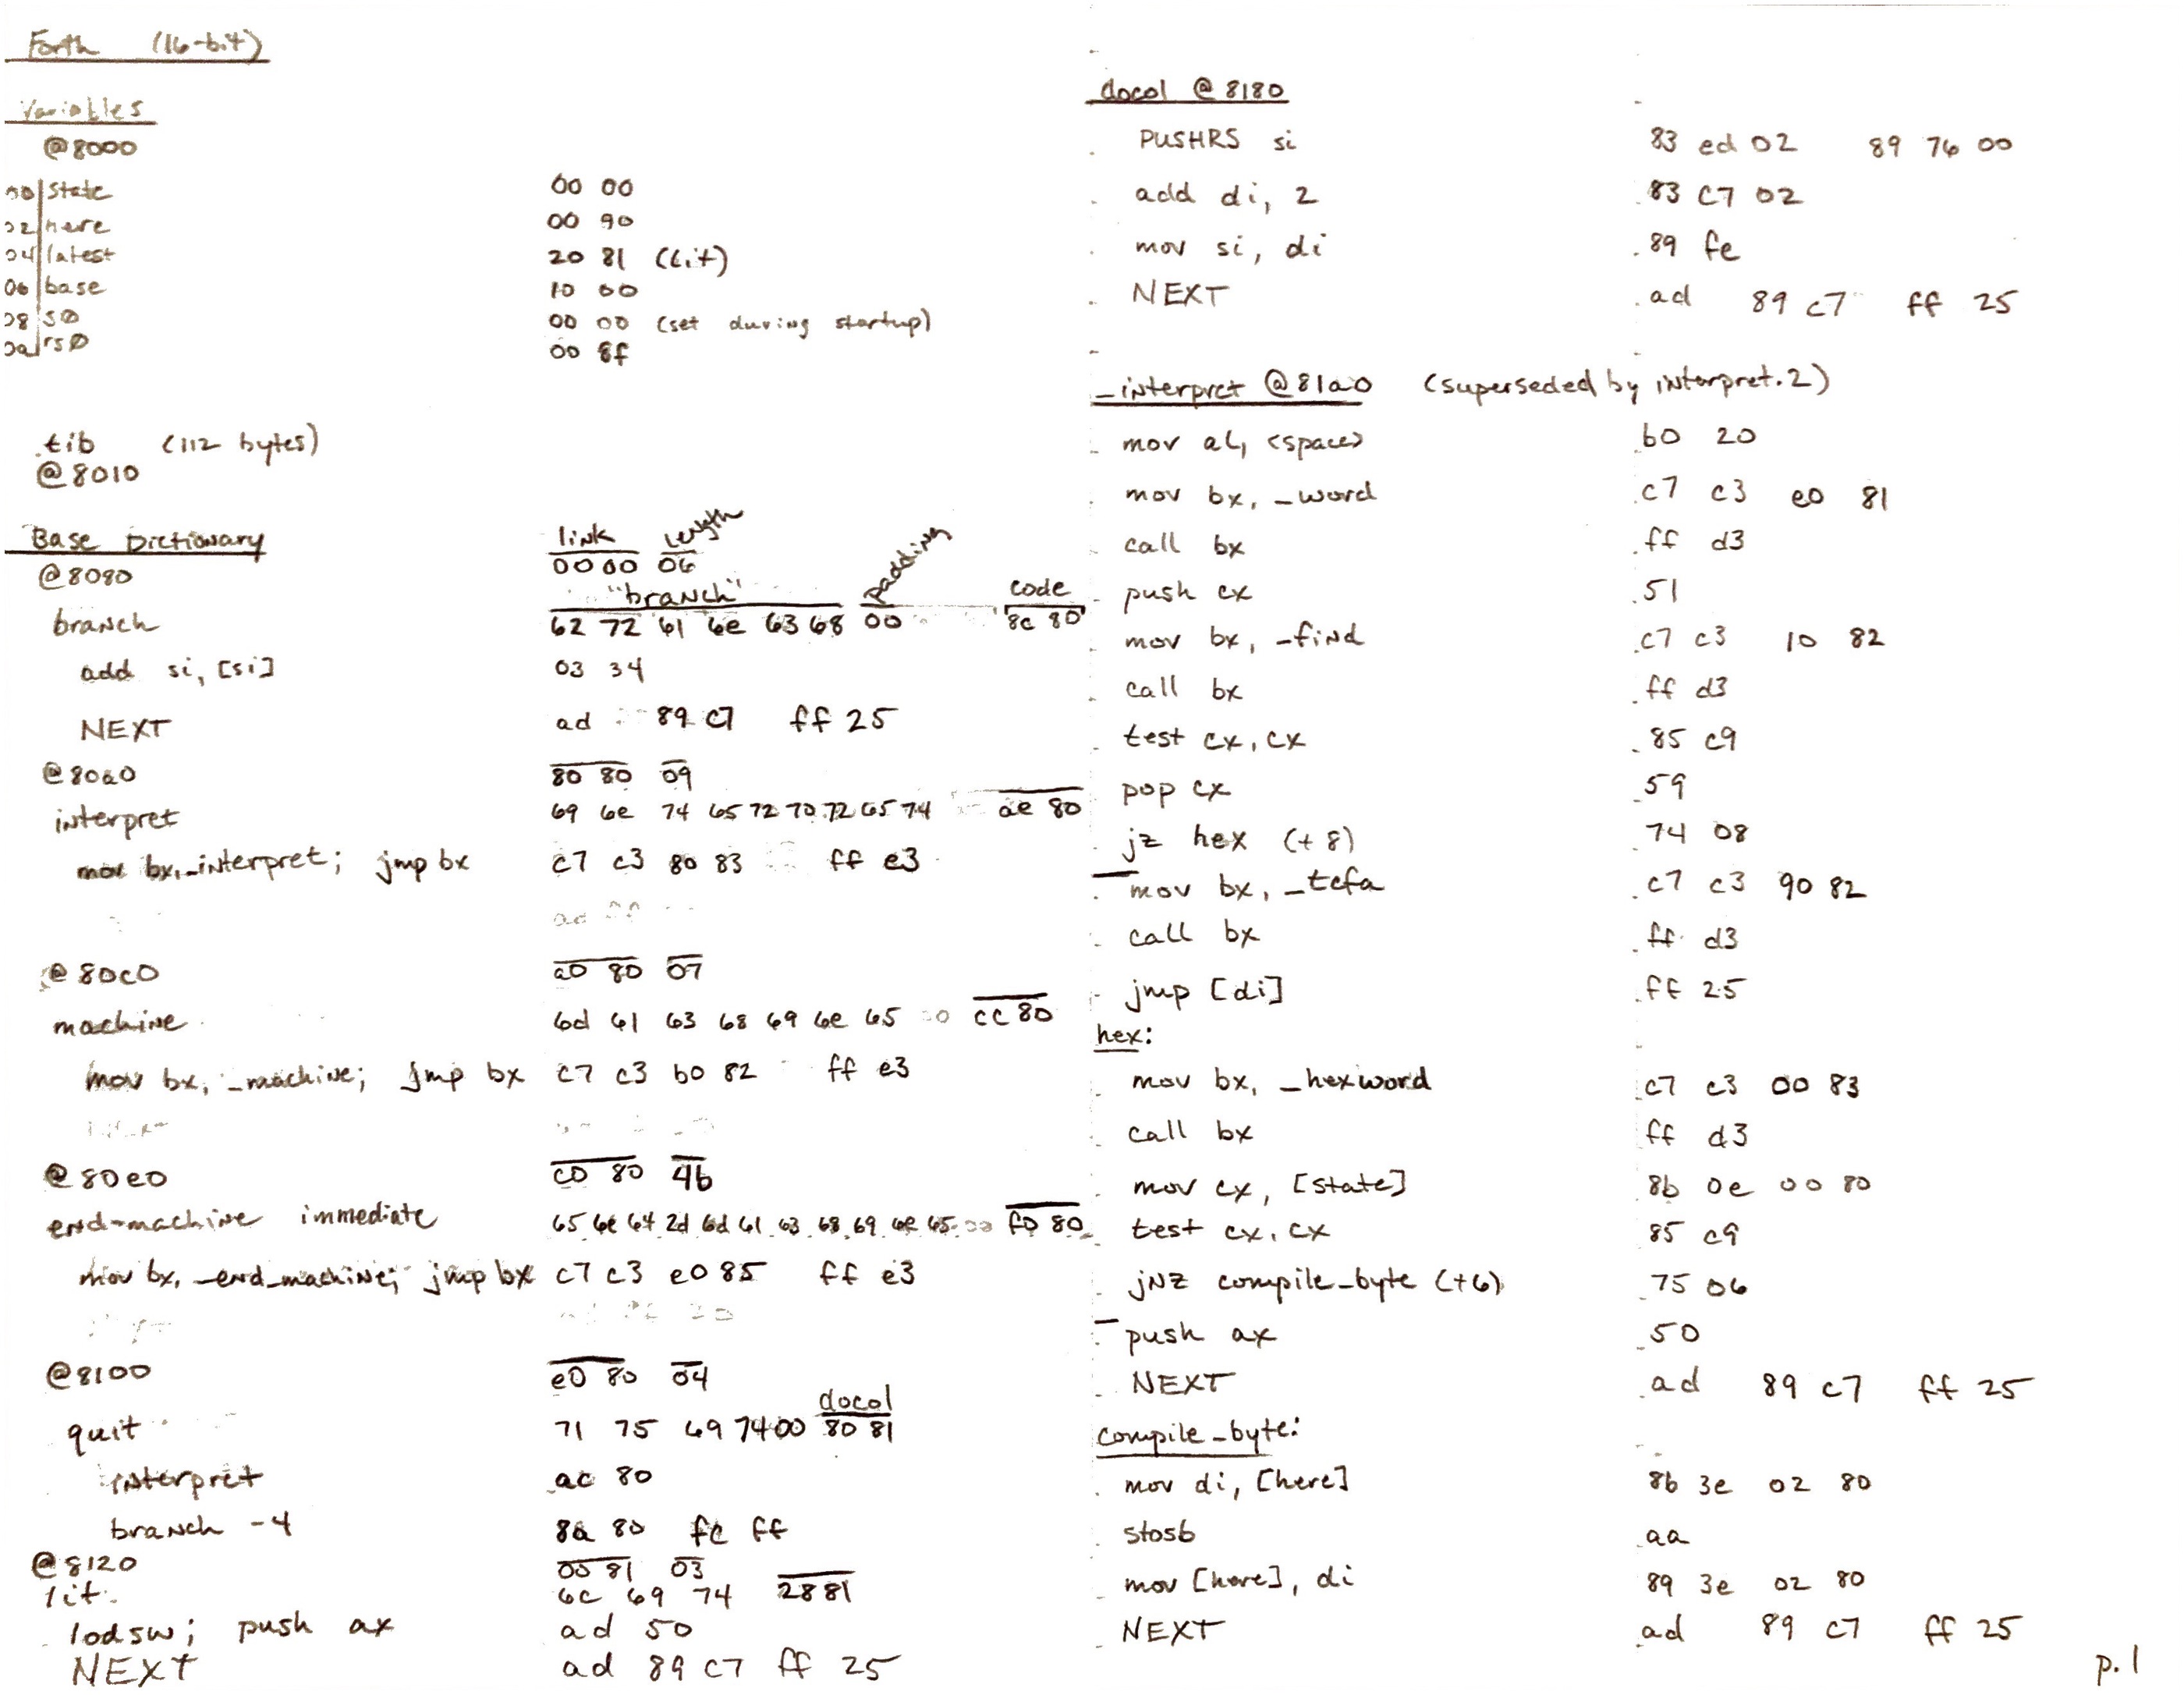 Forth (16-bit)
Variables
@8000
00 state 00 00
02 here 00 90
04 latest 20 81 (lit)
06 base 10 00
08 s0 00 00 (set during startup)
0a rs0 00 8f
tib (112 bytes)
@8010
Base Dictionary link length padding
@8080 0000 06
"branch" code
branch 62 72 61 6e 63 68 00 8c 80
add si, [si] 03 34
NEXT ad 89 c7 ff 25
@80a0 80 80 09
interpret 69 6e 74 65 72 70 72 65 74 ae 80
mov bx, _interpret; jmp bx c7 c3 80 83 ff e3
@80c0 a0 80 07
machine 6d 61 63 68 69 6e 65 cc 80
mov bx, _machine; jmp bx c7 c3 b0 82 ff e3
@80e0 c0 80 4b
end-machine immediate 65 6e 64 2d 6d 61 63 68 69 6e 65 f0 80
mov bx, _end_machine; jmp bx c7 c3 e0 85 ff e3
@8100 e0 80 04
docol
quit 71 75 69 74 00 80 81
interpret ac 80
branch -4 8a 80 fc ff
@8120 00 81 03
lit 6c 69 74 28 81
lodsw; push ax ad 50
NEXT ad 89 c7 ff 25
docol @ 8180
PUSHRS si 83 ed 02 89 76 00
add di, 2 83 c7 02
mov si, di 89 fe
NEXT ad 89 c7 ff 25
_interpret @81a0 (superseded by interpret.2)
mov al, <space> b0 20
mov bx, _word c7 c3 e0 81
call bx ff d3
push cx 51
mov bx, _find c7 c3 10 82
call bx ff d3
test cx, cx 85 c9
pop cx 59
jz hex (+8) 74 08
mov bx, _tcfa c7 c3 90 82
call bx ff d3
jmp [di] ff 25
hex:
mov bx, _hexword c7 c3 00 83
call bx ff d3
mov cx, [state] 8b 0e 00 80
test cx, cx 85 c9
jNZ compile_byte (+6) 75 06
push ax 50
NEXT ad 89 c7 ff 25
compile_byte:
mov di, [here] 8b 3e 02 80
stosb aa
mov [here], di 89 3e 02 80
NEXT ad 89 c7 ff 25
p.1